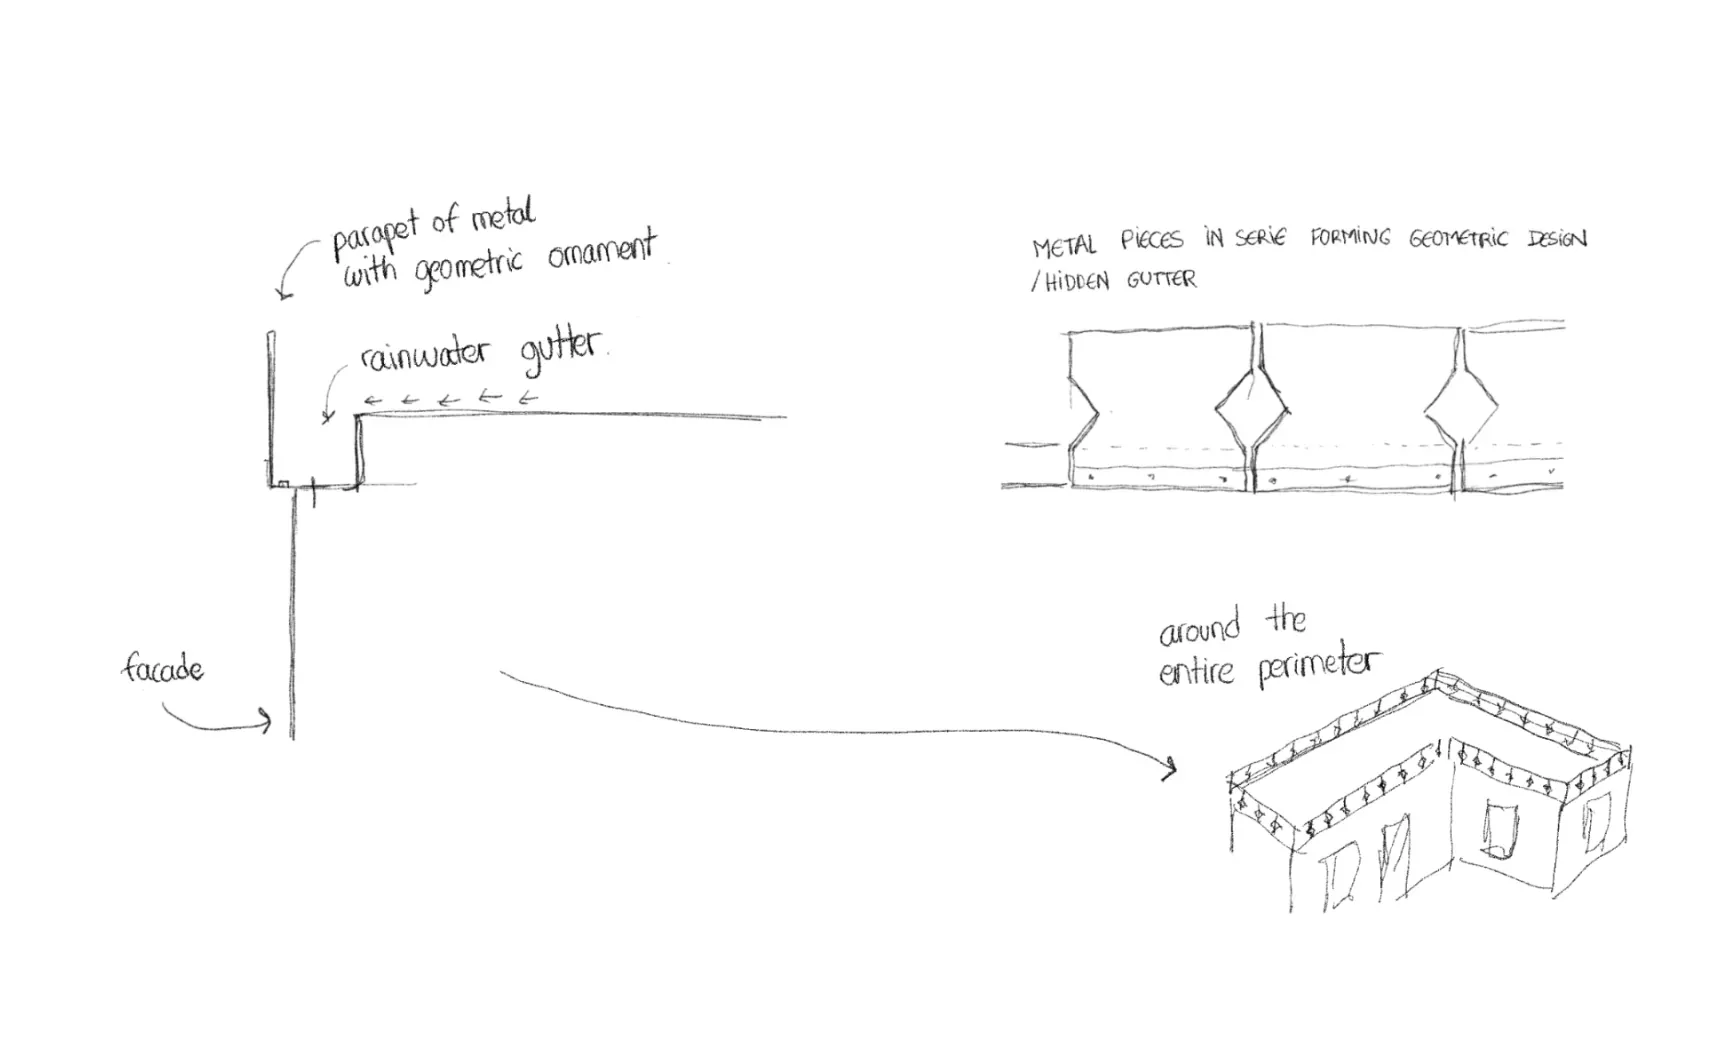 parapet of metal
with geometric ornament.
rainwater gutter.
facade
METAL PIECES IN SERIE FORMING GEOMETRIC DESIGN
/HIDDEN GUTTER
around the
entire perimeter